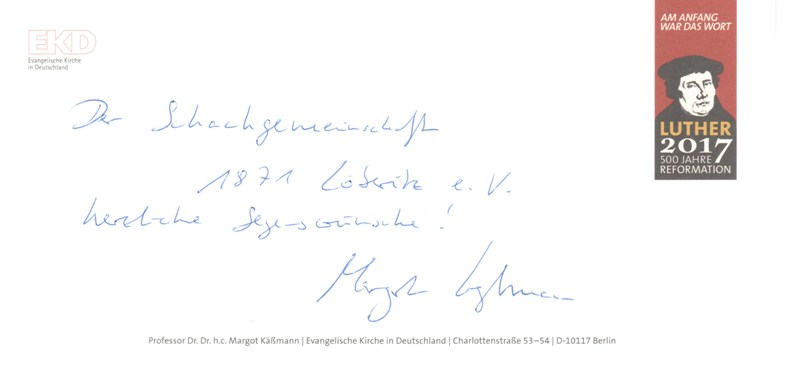 EKD
Evangelische Kirche
in Deutschland
AM ANFANG
WAR DAS WORT
LUTHER
2017
500 JAHRE
REFORMATION
Der Schachgemeinschaft
1871 Löberitz e.V.
herzliche Segenswünsche!
Margot Käßmann
Professor Dr. Dr. h.c. Margot Käßmann | Evangelische Kirche in Deutschland | Charlottenstraße 53–54 | D-10117 Berlin